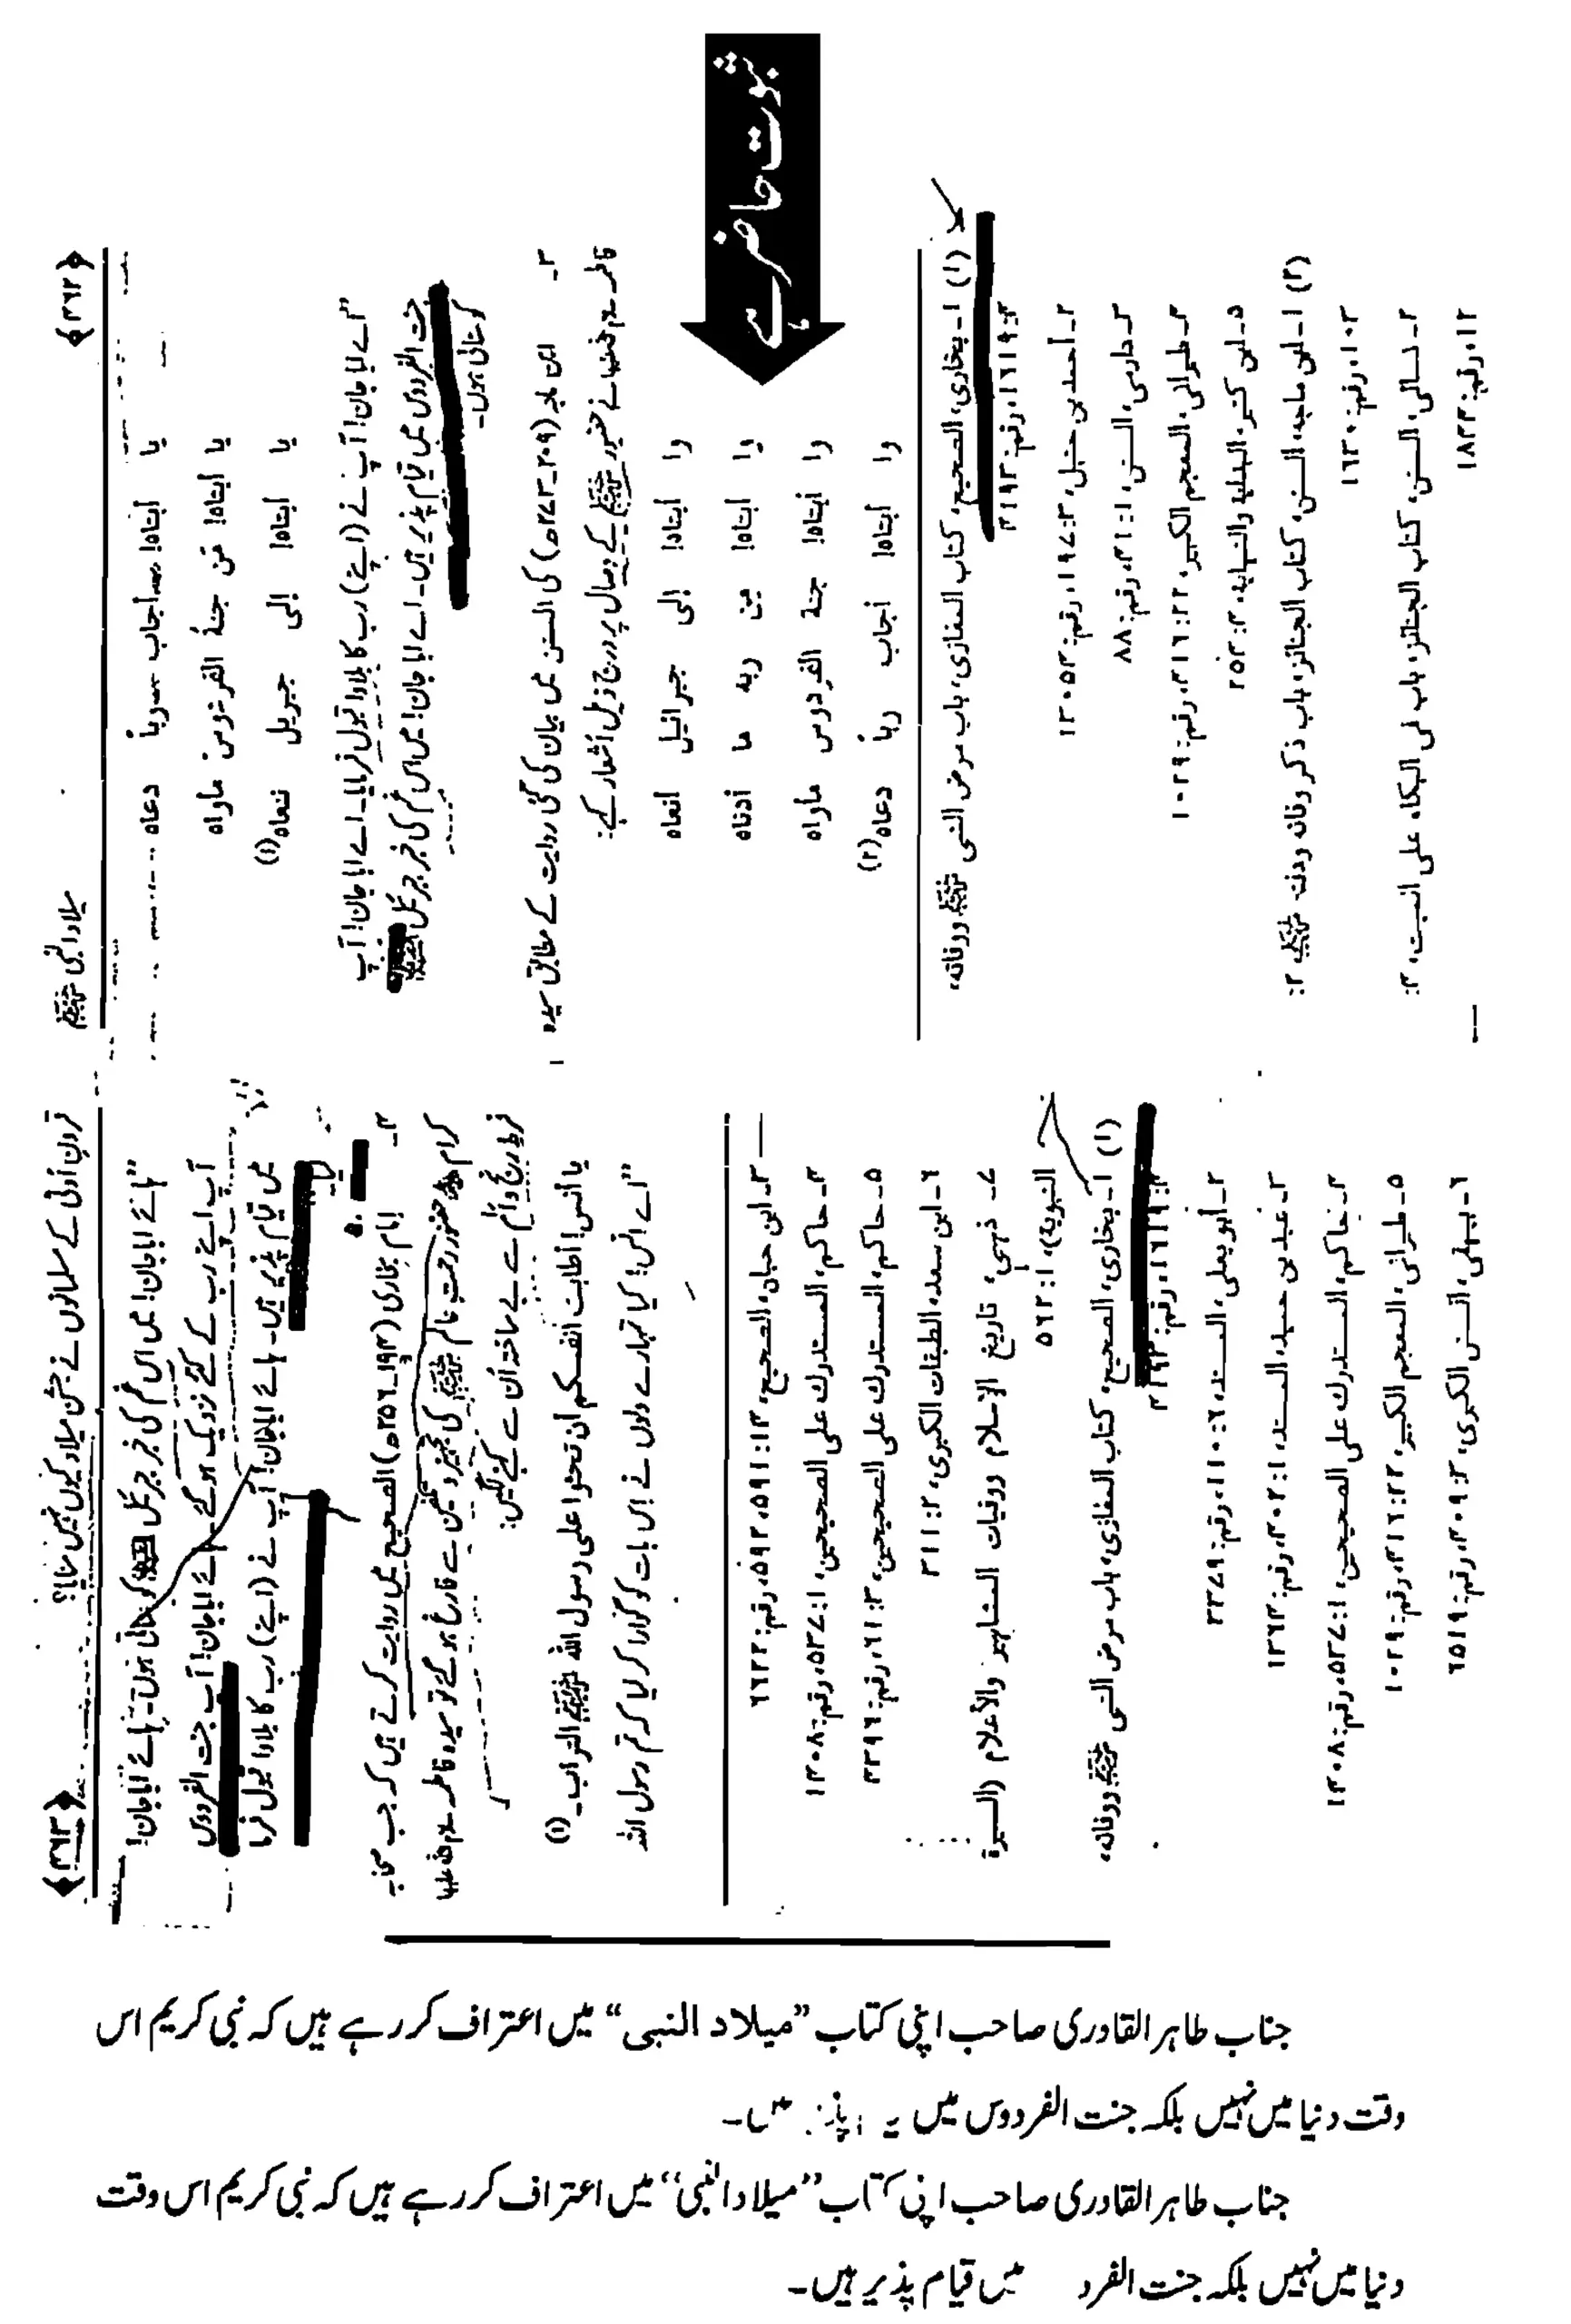 ثبوت حاضر ہے
میلاد النبی ﷺ
﴿۳۶۲﴾
یا ابتاہ! اجاب ربا دعاہ
یا ابتاہ! من جنۃ الفردوس ماواہ
یا ابتاہ! الی جبریل ننعاہ (۱)
”اے ابا جان! آپ نے (اپنے) رب کا بلاوا قبول فرمایا۔ اے ابا جان! آپ
جنت الفردوس میں قیام پذیر ہیں۔ اے ابا جان! میں اس غم کی خبر جبرئیل
کو سناتی ہوں۔
۳۔ ابن ماجہ (۲۰۹۔۲۷۳ھ) کی السنن میں بیان کی گئی روایت کے مطابق سیدہ
فاطمہ سلام اللہ علیہا نے حضور ﷺ کے وصال پر درج ذیل اَشعار کہے:
وا ابتاہ! الی جبرائیل انعاہ
وا ابتاہ! من ربہ ما ادناہ
وا ابتاہ! جنۃ الفردوس ماواہ
وا ابتاہ! اجاب ربا دعاہ (۲)
(۱) ۱۔ بخاری، الصحیح، کتاب المغازی، باب مرض النبی ﷺ ووفاتہ،
۴: ۱۶۱۹، رقم: ۴۱۹۳
۲۔ احمد بن حنبل، ۳: ۱۹۷، رقم: ۱۳۰۵۴
۳۔ دارمی، السنن، ۱: ۴۱، رقم: ۸۸
۴۔ طبرانی، المعجم الکبیر، ۲۲: ۴۱۶، رقم: ۱۰۲۹
۵۔ ابن کثیر، البدایہ والنہایہ، ۴: ۲۵۴
(۲) ۱۔ ابن ماجہ، السنن، کتاب الجنائز، باب ذکر وفاتہ ودفنہ ﷺ، ۲:
۱۰۳، رقم: ۱۶۳۰
۲۔ نسائی، السنن، کتاب الجنائز، باب فی البکاء علی المیت، ۴:
۱۲، رقم: ۱۸۴۴
قرونِ اُولیٰ کے مسلمانوں نے جشنِ میلاد کیوں نہیں منایا؟
﴿۳۶۳﴾
”ہائے ابا جان! میں اس غم کی خبر جبرئیل کو سناتی ہوں۔ ہائے ابا جان!
آپ اپنے رب کے کتنے نزدیک ہو گئے، ہائے ابا جان! آپ جنت الفردوس
میں قیام پذیر ہیں۔ ہائے ابا جان! آپ نے (اپنے) رب کا بلاوا قبول فرما
لیا۔
۴۔ امام بخاری (۱۹۴۔۲۵۶ھ) الصحیح میں روایت کرتے ہیں کہ جب صحابہ
کرام حضور رحمتِ عالم ﷺ کی تجہیز و تکفین سے فارغ ہو گئے تو سیدہ فاطمہ سلام اللہ علیہا
فرطِ رنج و اَلم سے بے ساختہ اُن سے کہنے لگیں:
یا انس! اطابت انفسکم ان تحثوا علی رسول اللہ ﷺ التراب۔ (۱)
”اے انس! کیا تمہارے دلوں نے اس بات کو گوارا کر لیا کہ تم رسول اللہ
۳۔ ابن حبان، الصحیح، ۱۴: ۵۹۱، ۵۹۲، رقم: ۶۶۲۲
۴۔ حاکم، المستدرک علی الصحیحین، ۱: ۵۳۷، رقم: ۱۴۰۸
۵۔ حاکم، المستدرک علی الصحیحین، ۳: ۶۱، رقم: ۴۳۹۶
۶۔ ابن سعد، الطبقات الکبری، ۲: ۳۱۱
۷۔ ذہبی، تاریخ الاسلام ووفیات المشاہیر والاعلام (السیرۃ
النبویۃ)، ۱: ۵۶۲
(۱) ۱۔ بخاری، الصحیح، کتاب المغازی، باب مرض النبی ﷺ ووفاتہ،
۴: ۱۶۱۹، رقم: ۴۱۹۳
۲۔ ابو یعلی، المسند، ۶: ۱۱۰، رقم: ۳۳۷۹
۳۔ عبد بن حمید، المسند، ۱: ۴۰۲، رقم: ۱۳۶۴
۴۔ حاکم، المستدرک علی الصحیحین، ۱: ۵۳۷، رقم: ۱۴۰۸
۵۔ طبرانی، المعجم الکبیر، ۲۲: ۴۱۶، رقم: ۱۰۲۹
۶۔ بیہقی، السنن الکبری، ۳: ۴۰۹، رقم: ۶۵۱۹
جناب طاہر القادری صاحب اپنی کتاب ”میلاد النبی“ میں اعتراف کر رہے ہیں کہ نبی کریم اس
وقت دنیا میں نہیں بلکہ جنت الفردوس میں
جناب طاہر القادری صاحب اپنی کتاب ”میلاد النبی“ میں اعتراف کر رہے ہیں کہ نبی کریم اس وقت
دنیا میں نہیں بلکہ جنت الفرد میں قیام پذیر ہیں۔